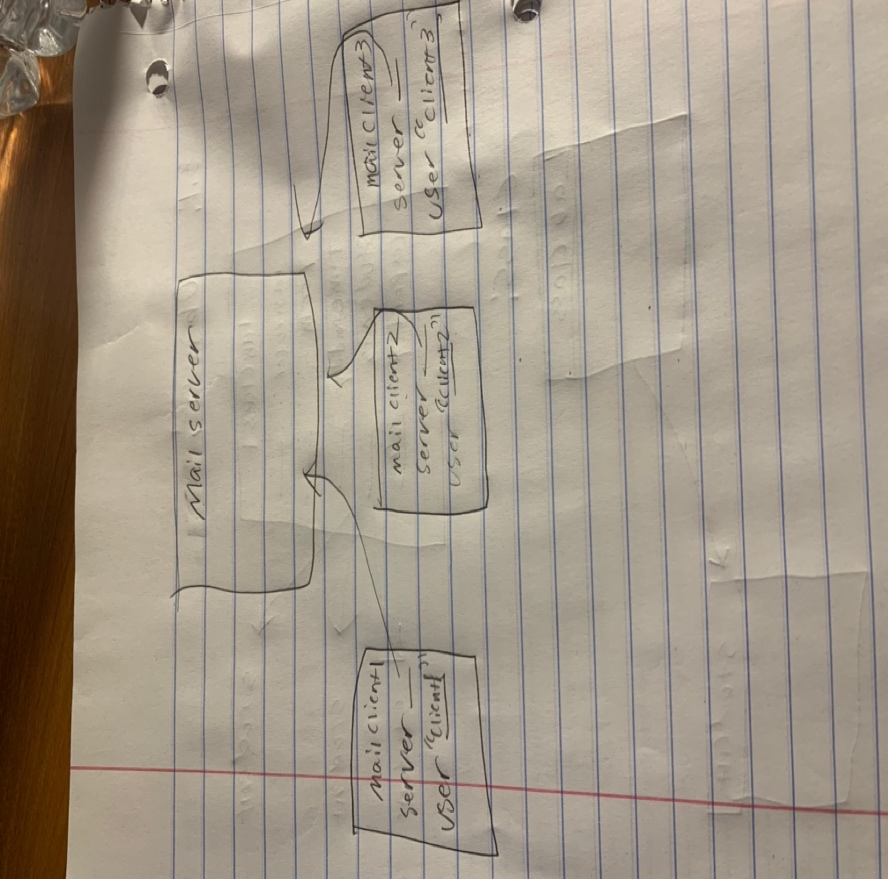 Mail server
mail client1
server __
user "client1"
mail client2
server __
user "client2"
mail client3
server __
user "client3"